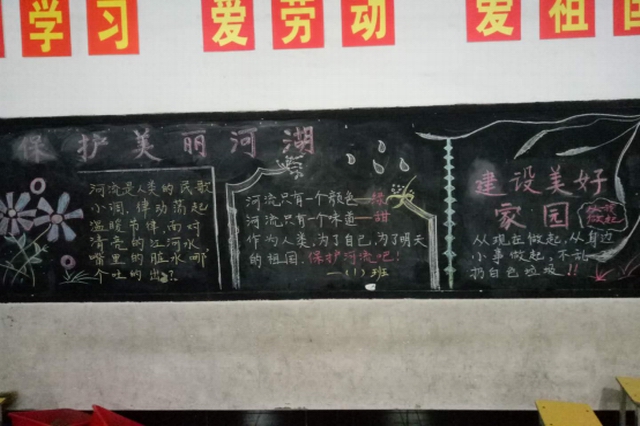 学习
爱劳动
爱祖国
保护美丽河湖
河流是人类的民歌
小调,律动荡起
温暖节律,面对
清亮的江河水
嘴里的脏水哪
个吐的出?
河流只有一个颜色——绿
河流只有一个味道——甜
作为人类,为了自己,为了明天
的祖国,保护河流吧!
一(1)班
建设美好
家园
从现在做起,从身边
小事做起,不乱
扔白色垃圾!!